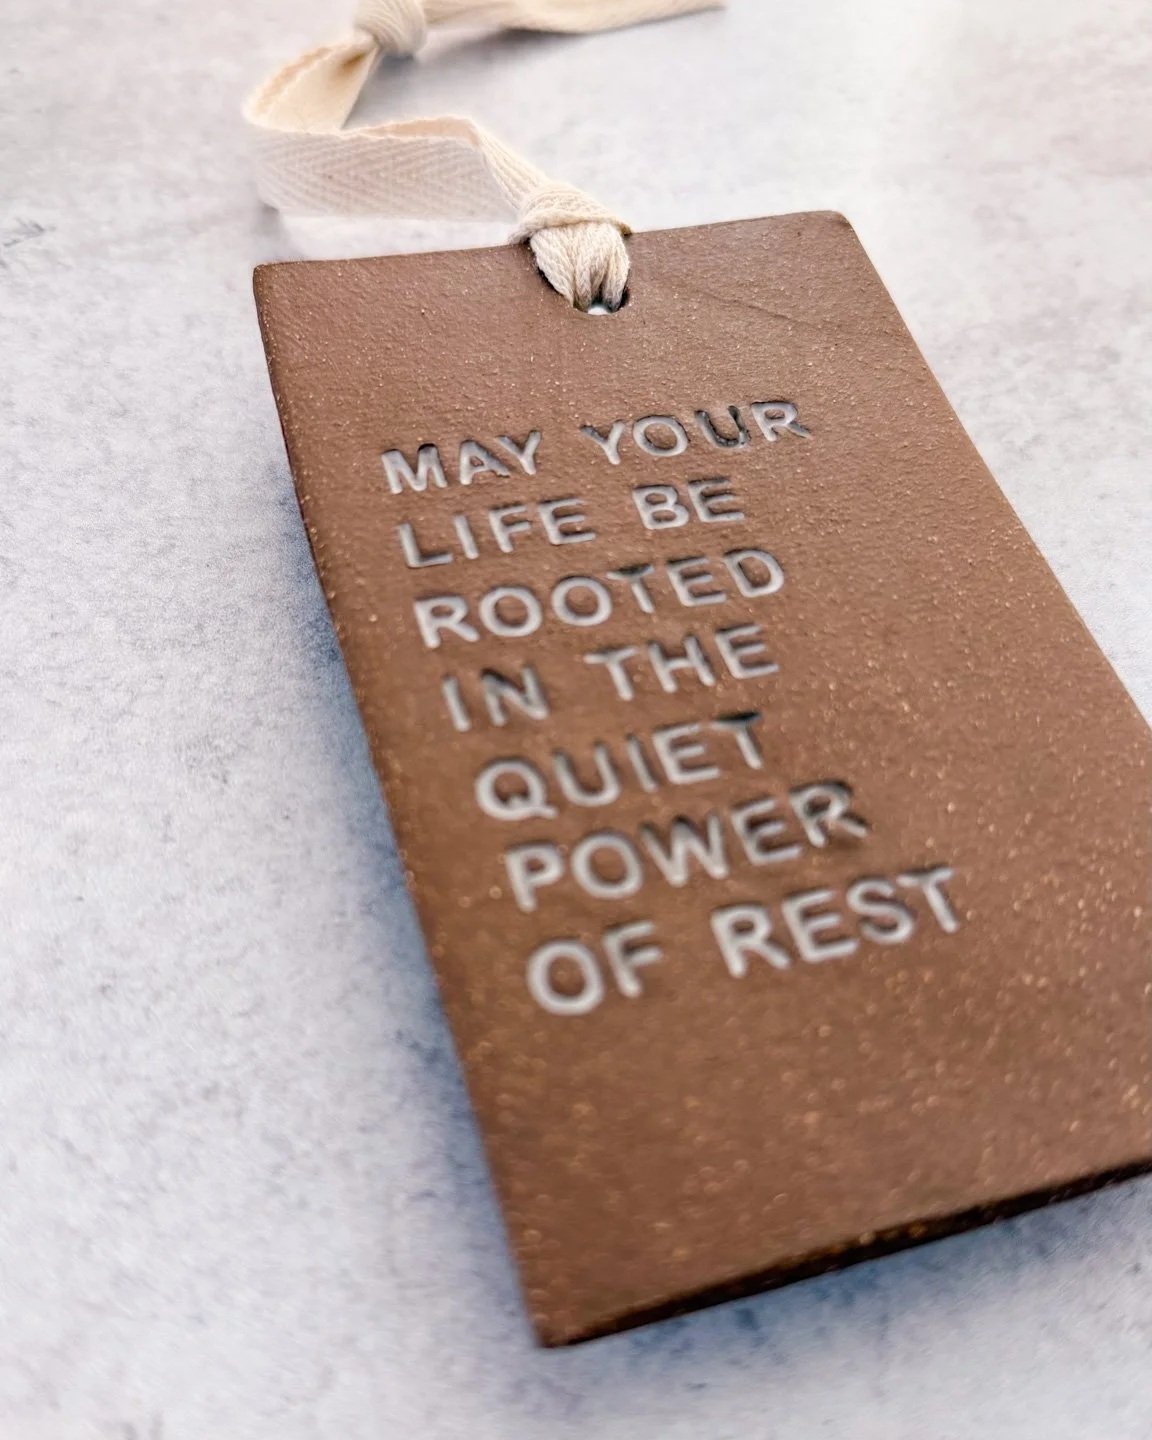 MAY YOUR
LIFE BE
ROOTED
IN THE
QUIET
POWER
OF REST